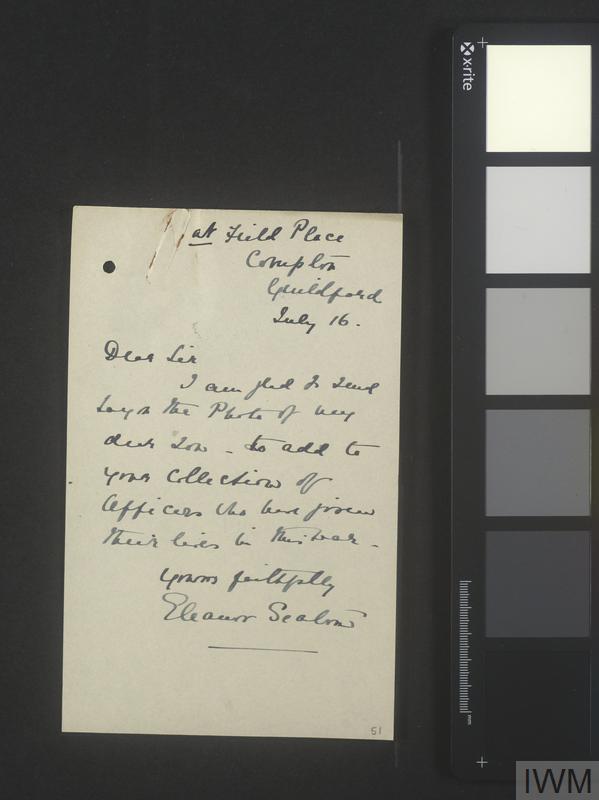 at Field Place
Compton
Guildford
July 16.
Dear Sir
I am glad to send
to you the Photo of my
dear Son - to add to
your Collection of
Officers who have given
their lives in this war -
Yours faithfully
Eleanor
51
x·rite
mm
IWM